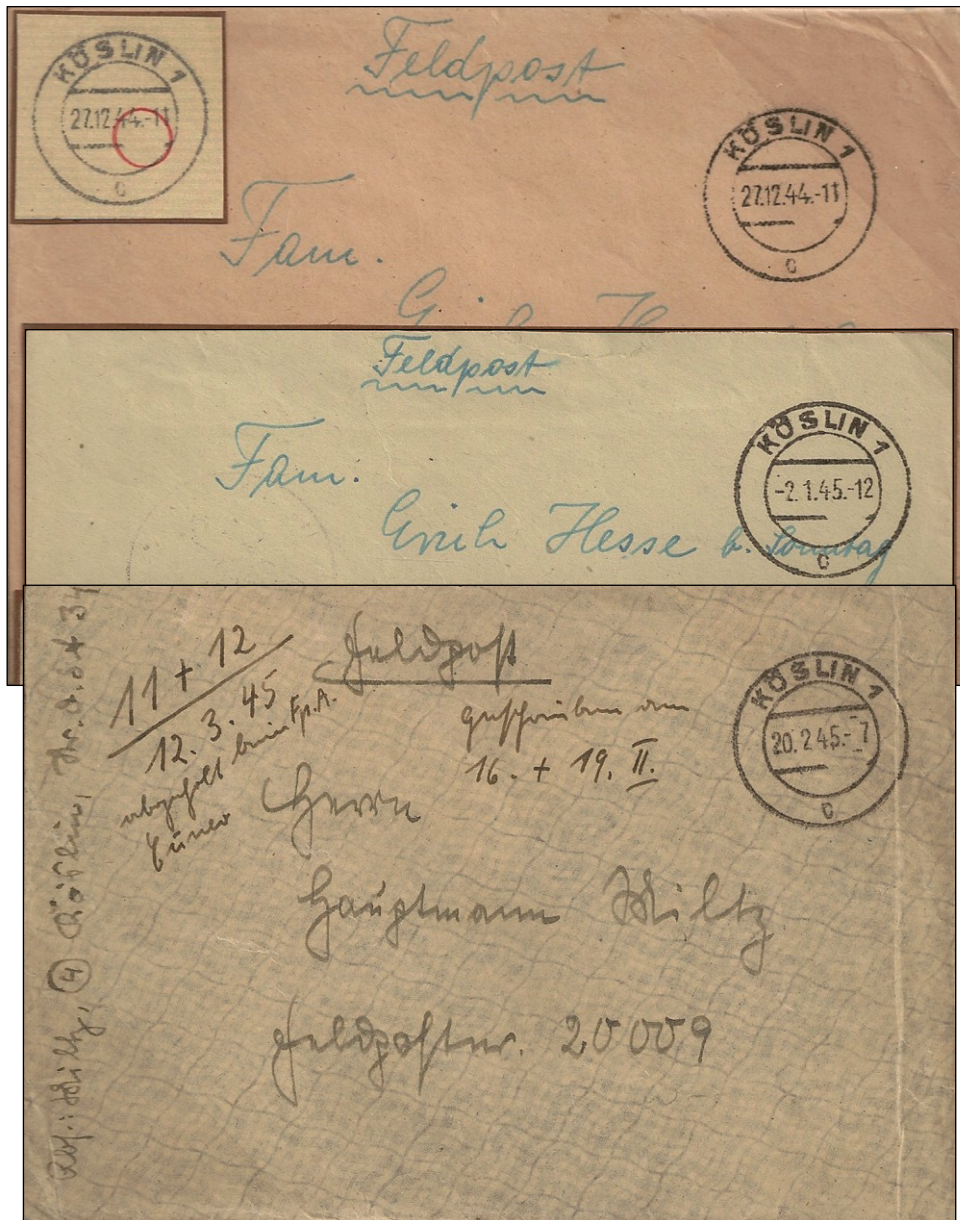 KÖSLIN 1
27.12.44.-11
c
Feldpost
KÖSLIN 1
27.12.44.-11
c
Fam.
Feldpost
KÖSLIN 1
-2.1.45.-12
c
Fam.
Erich Hesse b. Sonntag
11 + 12
12.3.45
abgeholt beim Fp.A.
Feldpost
geschrieben am
16. + 19. II.
KÖSLIN 1
20.2.45.-7
c
Herrn
Hauptmann Miltz
Feldpostnr. 20009
Abs.: Miltz, 4 Köslin,